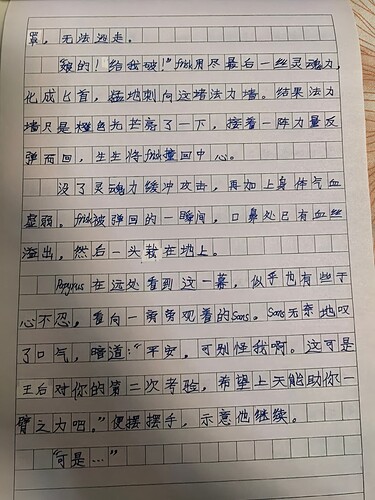 罩，无法逃走。
"娘的！给我破！"frisk用尽最后一丝灵魂力，
化成匕首，猛地刺向这墙法力墙。结果法力
墙只是橙色光芒亮了一下，接着一阵力量反
弹而回，生生将frisk撞回中心。
没了灵魂力缓冲攻击，再加上身体气血
虚弱。frisk被弹回的一瞬间，口鼻处已有血丝
溢出，然后一头栽在地上。
Papyrus在远处看到这一幕，似乎也有些于
心不忍，看向一旁旁观着的Sans。Sans无奈地叹
了口气，暗道："平安，可别怪我啊。这可是
王后对你的第二次考验，希望上天能助你一
臂之力吧。"便摆摆手，示意他继续。
"可是…"